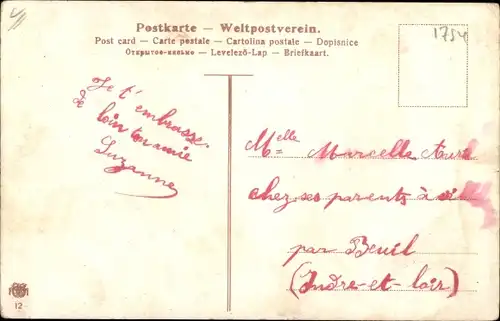 Postkarte — Weltpostverein.
Post card — Carte postale — Cartolina postale — Dopisnice
Открытое-письмо — Levelező-Lap — Briefkaart.
1754
Je t'embrasse
de
loin ton amie
Suzanne
Melle Marcelle
chez ses parents à
par Beuil
(Indre-et-loir)
12